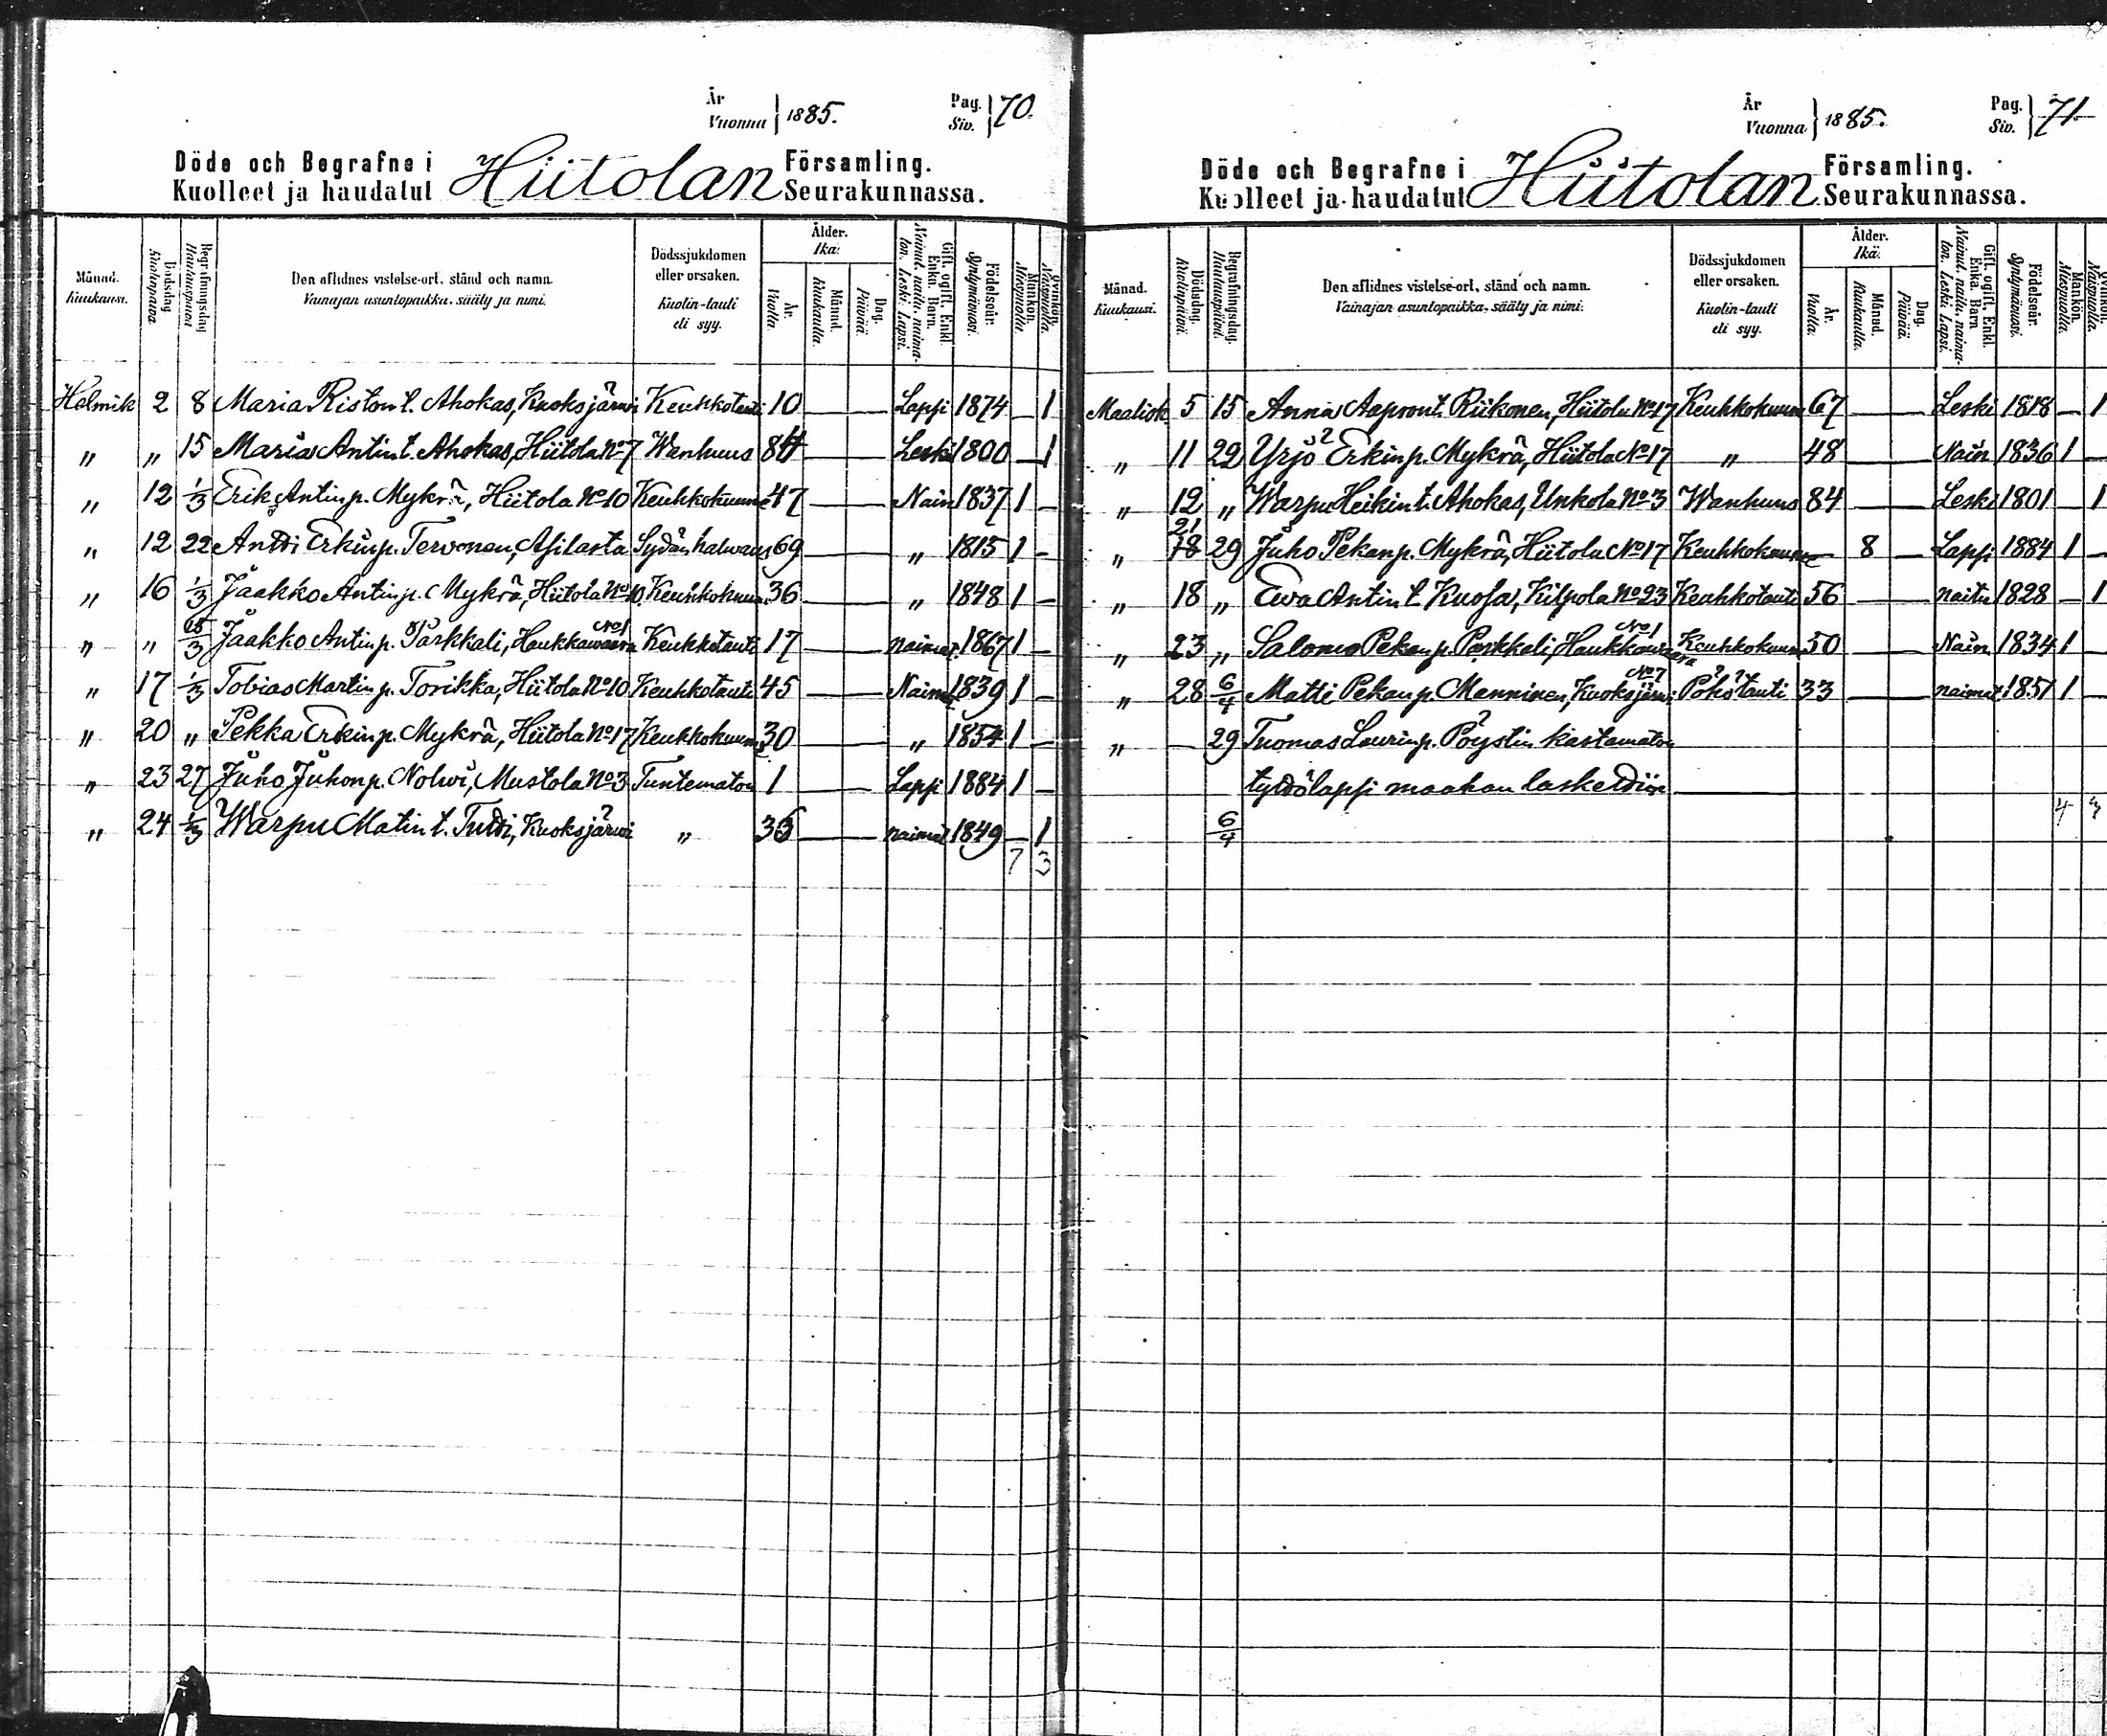 År
Vuonna } 1885.
Pag.
Siv. } 70.
Döde och Begrafne i Hiitolan Församling.
Kuolleet ja haudatut Seurakunnassa.
Månad. Kuukausi.
Dödsdag Kuolinpäivä
Begrafningsdag Hautauspäivä
Den aflidnes vistelse-ort, stånd och namn.
Vainajan asuntopaikka, sääty ja nimi.
Dödssjukdomen eller orsaken.
Kuolin-tauti eli syy.
Ålder. Ikä.
År. Vuotta.
Månad. Kuukautta.
Dag. Päivää.
Gift, ogift, Enkl. Enka, Barn.
Nainut, naitu, naimaton, Leski, Lapsi.
Födelseår. Syntymävuosi.
Mankön. Miespuolia.
Qvinkön. Naispuolia.
Helmik 2 8 Maria Riston t. Ahokas, Kuoksjärwi Keuhkotauti 10 — — Lapsi 1874 — 1
" " 15 Maria Antin t. Ahokas, Hiitola No 7 Wanhuus 84 — — Leski 1800 — 1
" 12 1/3 Erik Antinp. Mykrä, Hiitola No 10 Keuhkokuume 47 — — Nain 1837 1 —
" 12 22 Antti Erkinp. Tervonen, Asilasta Sydänhalwaus 69 — — " 1815 1 —
" 16 1/3 Jaakko Antinp. Mykrä, Hiitola No 10. Keuhkokuume 36 — — " 1848 1 —
" " 15/3 Jaakko Antinp. Parkkali, Haukkawaara No 1 Keuhkotauti 17 — — naimat. 1867 1 —
" 17 1/3 Tobias Martinp. Torikka, Hiitola No 10 Keuhkotauti 45 — — Nainut 1839 1 —
" 20 " Pekka Erkinp. Mykrä, Hiitola No 17 Keuhkokuume 30 — — " 1854 1 —
" 23 27 Juho Juhonp. Nolwi, Mustola No 3 Tuntematon 1 — — Lapsi 1884 1 —
" 24 1/3 Warpu Matin t. Tutti, Kuoksjärwi " 35 — — naimat 1849 — 1
7 3
År
Vuonna } 1885.
Pag.
Siv. } 71
Döde och Begrafne i Hiitolan Församling.
Kuolleet ja haudatut Seurakunnassa.
Månad. Kuukausi.
Dödsdag. Kuolinpäivä.
Begrafningsdag. Hautauspäivä.
Den aflidnes vistelse-ort, stånd och namn.
Vainajan asuntopaikka, sääty ja nimi.
Dödssjukdomen eller orsaken.
Kuolin-tauti eli syy.
Ålder. Ikä.
År. Vuotta.
Månad. Kuukautta.
Dag. Päivää.
Gift, ogift, Enkl. Enka, Barn
Nainut, naitu, naimaton, Leski, Lapsi.
Födelseår. Syntymävuosi.
Mankön. Miespuolia.
Qvinkön. Naispuolia.
Maalisk. 5 15 Anna Aapron t. Riikonen, Hiitola No 17 Keuhkokuume 67 — — Leski 1818 — 1
" 11 22 Yrjö Erkinp. Mykrä, Hiitola No 17 " 48 — — Nain 1836 1 —
" 12 " Warpu Heikin t. Ahokas, Unkola No 3 Wanhuus 84 — — Leski 1801 — 1
" 21 18 29 Juho Pekanp. Mykrä, Hiitola No 17 Keuhkokuume — 8 — Lapsi 1884 1 —
" 18 " Ewa Antin t. Kuosa, Kilpola No 23 Keuhkotauti 56 — — naitu 1828 — 1
" 23 " Salomo Pekanp. Parkkali, Haukkawaara No 1 Keuhkokuume 50 — — Nain 1834 1 —
" 28 6/4 Matti Pekanp. Manninen, Kuoksjärwi No 7 Pöhötauti 33 — — naimat 1851 1 —
" — 29 Tuomas Laurinp. Pöystin kastamaton
tyttölapsi maahan laskettiin
4 3
6/4